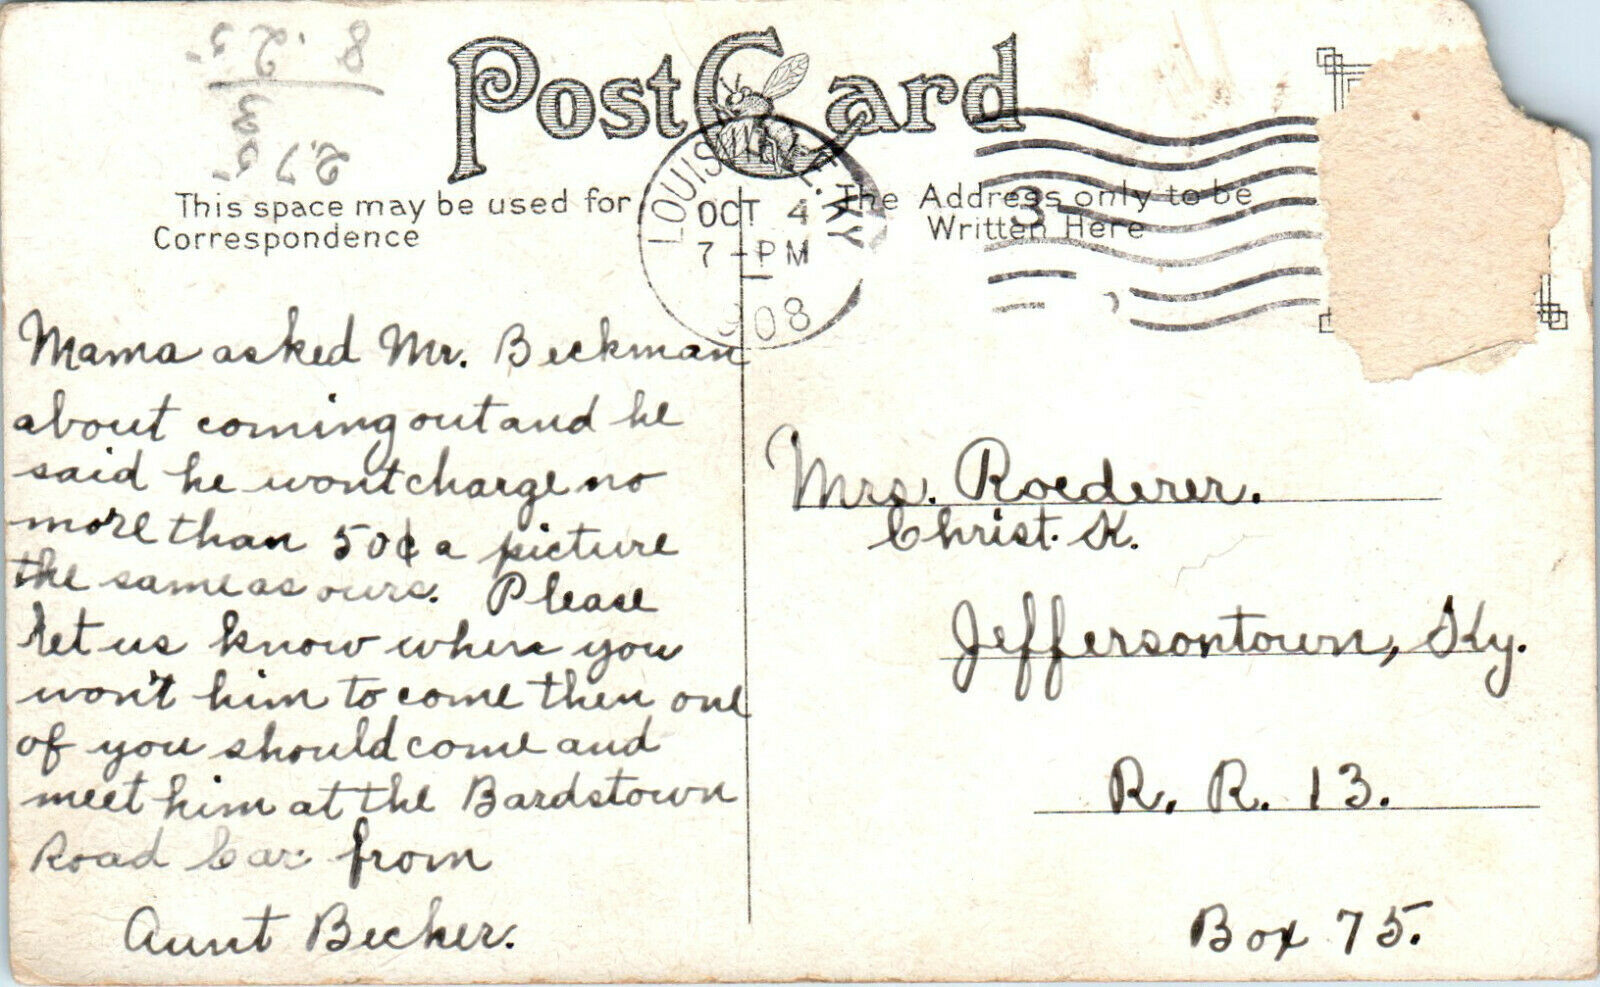 Post Card
This space may be used for
Correspondence
The Address only to be
Written Here
LOUISVILLE, KY
OCT 4
7 - PM
1908
3
Mama asked Mr. Beckman
about coming out and he
said he wont charge no
more than 50¢ a picture
the same as ours. Please
let us know when you
won't him to come then one
of you should come and
meet him at the Bardstown
Road Car from
Aunt Becker.
Mrs. Roederer.
Christ. K.
Jeffersontown, Ky.
R. R. 13.
Box 75.